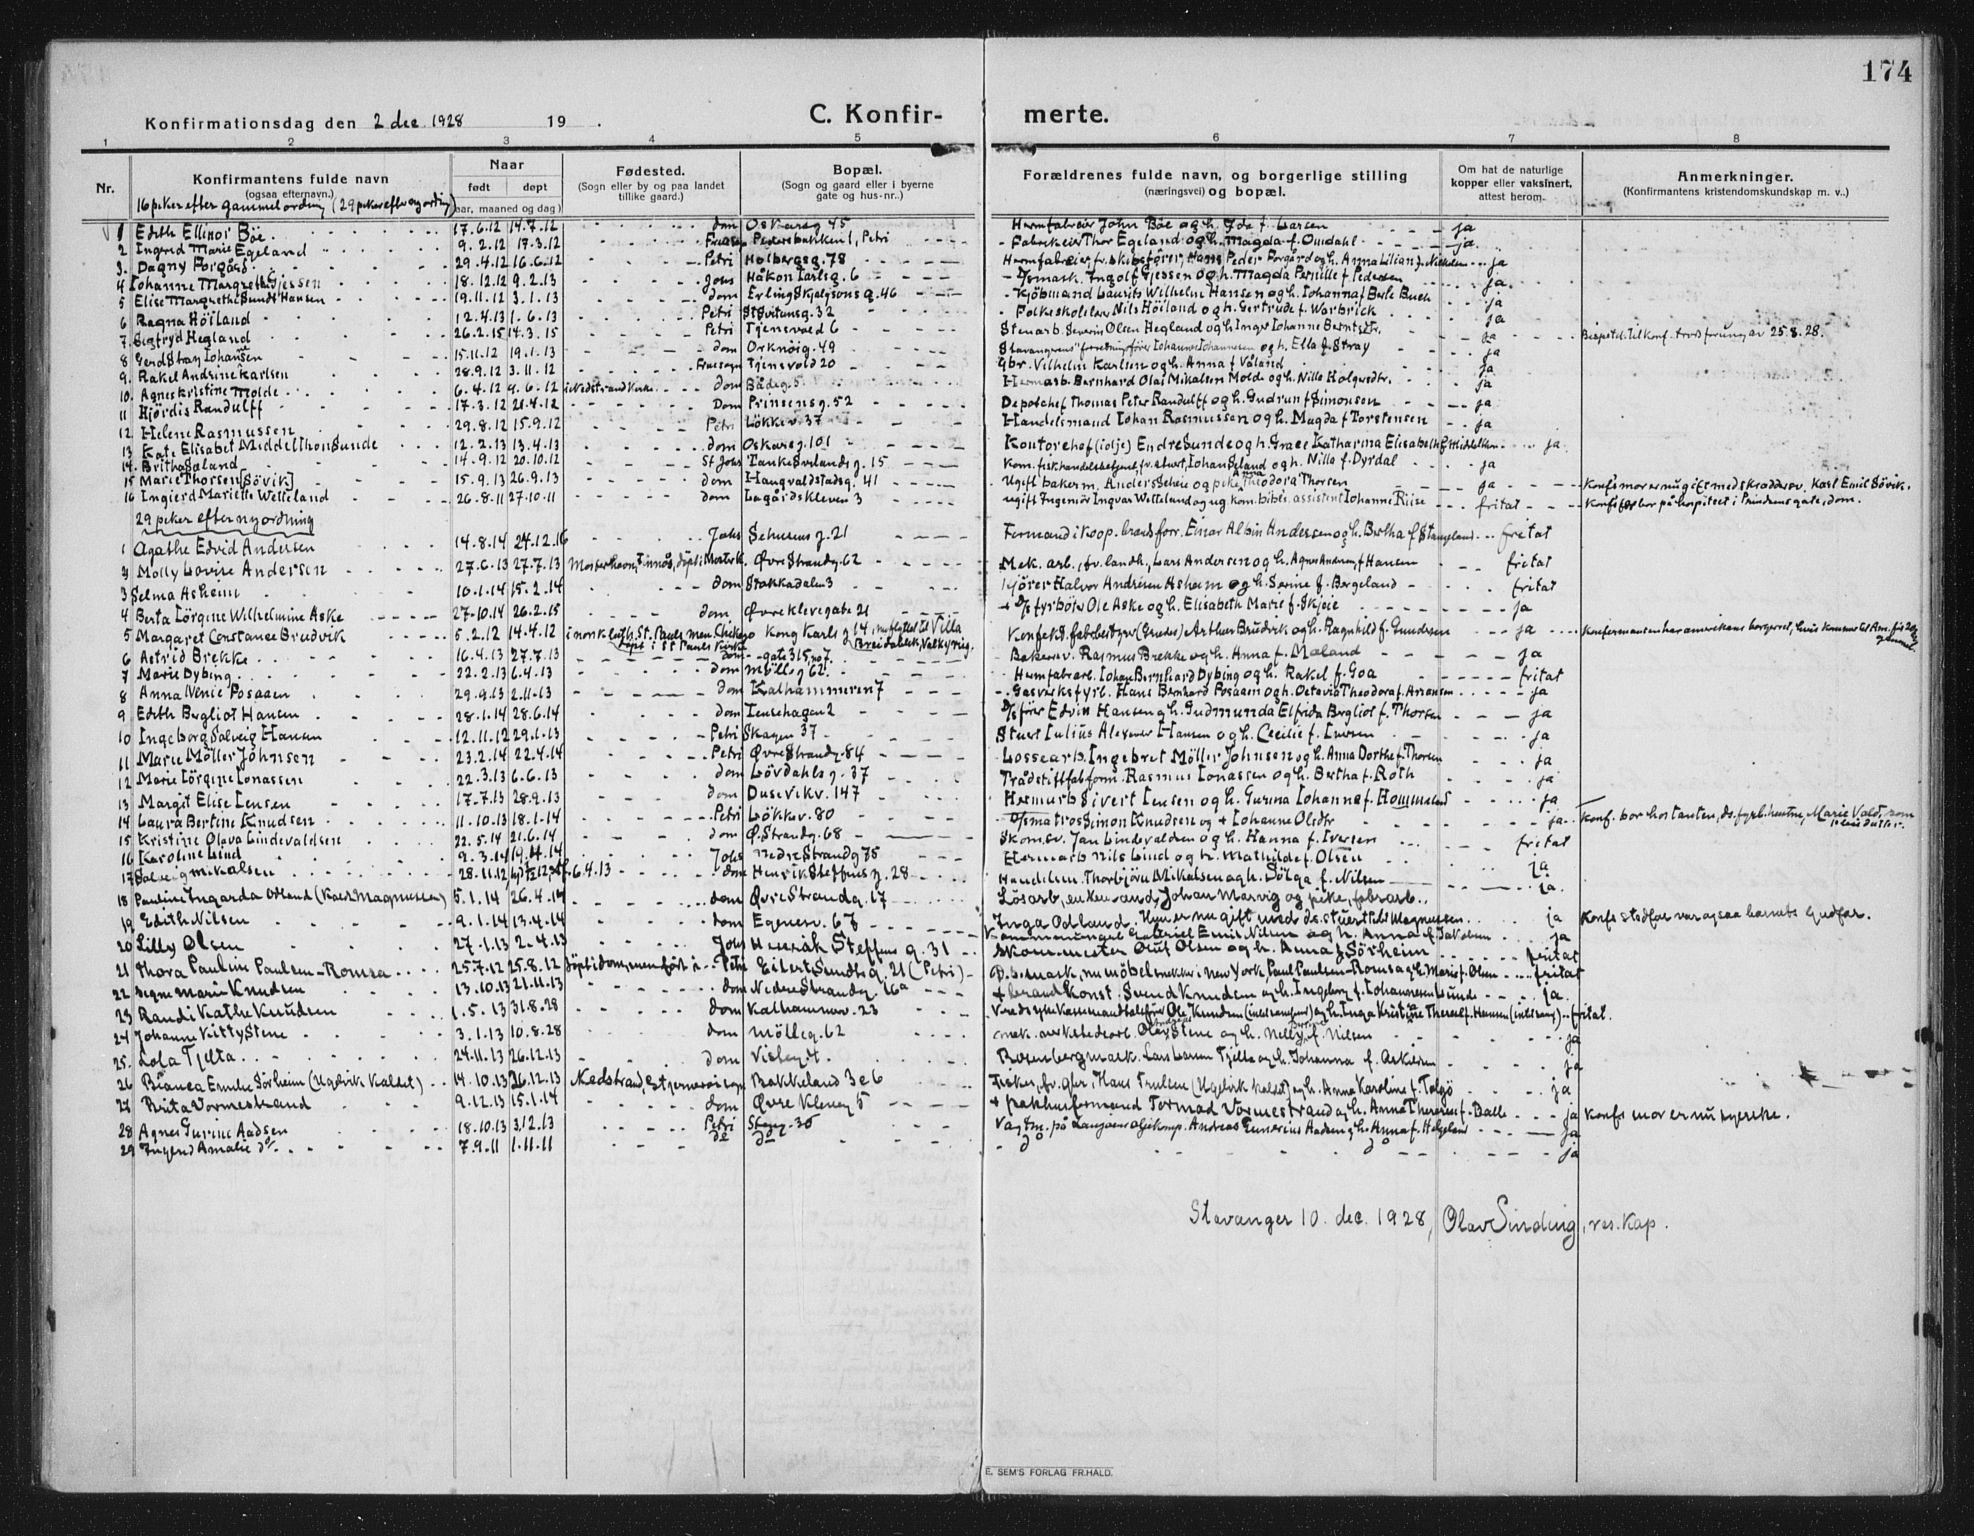 174
Konfirmationsdag den 2 dec. 1928 19 .
C. Konfirmerte.
1 2 3 4 5 6 7 8
Nr.
Konfirmantens fulde navn
(ogsaa efternavn.)
Naar
født døpt
(aar, maaned og dag)
Fødested.
(Sogn eller by og paa landet
tillike gaard.)
Bopæl.
(Sogn og gaard eller i byerne
gate og hus-nr..)
Forældrenes fulde navn, og borgerlige stilling
(næringsvei) og bopæl.
Om hat de naturlige
kopper eller vaksinert,
attest herom.
Anmerkninger.
(Konfirmantens kristendomskundskap m. v..)
16 piker efter gammel ordning (29 piker efter ny ordning)
1 Edith Ellinor Bøe 17.6.12 14.7.12 dom Oskarsg 45 Hermfabreier John Bøe og h. Ida f. Larsen ja
2 Ingerid Marie Egeland 9.2.12 17.3.12 Fruesogn Pedersbakken 1, Petri Fabrikeier Thor Egeland og h. Magda f. Omdahl ja
3. Dagny Forgård 29.4.12 16.6.12 Petri Holbergsg. 78 Hermfabreier, fv. skibsfører, Hans Peder Forgård og h. Anna Lilian f. Nilsen ja
4 Johanne Margrethe Gjessen 18.12.12 9.2.13 Johs Håkon Jarlsg. 6 D/smask. Ingolf Gjessen og h. Magda Pernille f. Pedersen ja.
5 Elise Margrethe Sundt Hansen 19.11.12 3.1.13 dom Erling Skjalgsons g. 46 Kjöbmand Laurits Wilhelm Hansen og h. Johanna f. Berle Buch ja
6 Ragna Höiland 12.4.13 1.6.13 Petri St Svitunsg. 32 Folkeskolelærer Nils Höiland og h. Gertrude f. Warbrick ja
7. Sigfryd Hegland 26.2.15 14.3.15 Petri Tjensvold 6 Stenarb. Severin Olsen Hegland og h. Inger Johanne Berntsdtr. ja Bispetil. til konf. trods forung av 25.8.28.
8 Gerd Stray Johansen 15.11.12 19.1.13 dom Orknöig. 49 Stavangerens" forretningsfører Johannes Johannesen og h. Ella f. Stray ja
9. Rakel Andrine Karlsen 28.9.12 3.11.12 Fruesogn Tjensvold 20 Gbr. Vilhelm Karlsen og h. Anna f. Våland ja
10. Agnes Kristine Molde 6.4.12 9.6.12 i Nedstrand kirke dom Bådeg. 5 Hermarb. Bernhard Olai Mikalsen Mold og h. Nille Holgersdtr. ja
11 Hjördis Randulff 17.3.12 21.4.12 Dom Prinsensg. 52 Depotchef Thomas Peter Randulff og h. Gudrun f. Simonsen ja
12 Helene Rasmussen 29.8.12 15.9.12 Petri Lökkev. 37 Handelsmand Johan Rasmussen og h. Magda f. Torstensen ja
13 Kate Elisabet Middelthon Sunde 12.2.13 13.4.13 dom Oskarsg. 101 Kontorchef (olje) Endre Sunde og h. Grace Katharina Elisabeth f. Middelthon ja.
14. Britha Søland 14.9.12 20.10.12 St Johs Tanke Svilands g. 15 ja
15 Marie Thorsen [Sövik] 15.9.13 26.9.13 dom Haugvaldstadsg. 41 Ugift bakerm. Anders Scheie og pike Anna Theodora Thorsen ja Konfs mor er nu gift med skraddersv. Karl Emil Sövik.
16 Ingierd Mariette Welleland 26.8.11 27.10.11 dom Lagårdskleven 3 ugift Ingeniör Ingvar Welleland og ug kom. bibl. assistent Johanne Riise fritat Konfs far bor på hospitset i Prindsens gate, dom.
29 piker efter ny ordning
1 Agathe Edvid Andersen 14.8.14 24.12.16 Johs Sehusens g. 21 Formand i koop. brændforr. Einar Albin Andersen og h. Bertha f. Stangeland fritat
2 Molly Lovise Andersen 27.6.13 27.7.13 Øvre Strandg. 62 Mek. arb., fv. landh., Lars Andersen og h. Agnes Andersen, f. Hansen fritat
3 Selma Asheim 10.1.14 15.2.14 dom Stokkadalen 3 Kjörer Halvor Andresen Asheim og h. Serine f. Bergeland fritat
4 Berta Jörgine Wilhelmine Aske 27.10.14 26.2.15 dom Øvre Klevegate 21 + D/sfyrböter Ole Aske og h. Elisabeth Marie f. Skjeie ja
5 Margaret Constance Brudvik 5.2.12 14.4.12 i norsk luth. St. Pauls men. Chikago Kong Karls g 14, nu flyttet til Villa Breidablik, Valkyrieg. Arthur Brudvik og h. Ragnhild f. Gundersen ja
6 Astrid Brekke 16.4.13 27.7.13 døpt i St Pauls kirke dom gate 315, no 7 Bakersv. Rasmus Brekke og h. Anna f. Mæland ja
7 Marie Dybing 22.2.13 6.4.13 dom Mölleg 62 Hermfabrarb. Johan Bernhard Dybing og h. Rakel f. Goa fritat
8 Anna Venie Fosaaen 29.9.13 2.11.13 dom Kalhammeren 7 Gasverksfyrb. Hans Bernhard Fosaaen og h. Octavia Theodora f. Aroensen ja
9 Edith Bergliot Hansen 28.1.14 28.6.14 dom Jensehagen 2 D/sförer Edvin Hansen og h. Gudmunda Elfrida Bergliot f. Thorsen ja
10 Ingeborg Solveig Hansen 12.11.12 29.1.13 Petri Skagen 37 Stuert Julius Alexander Hansen og h. Cecilie f. Iversen ja
11 Marie Möller Johnsen 23.2.14 22.4.14 Petri Øvre Strandg. 84 Lossearb. Ingebret Möller Johnsen og h. Anna Dorthe f. Thorsen ja
12 Marie Jörgine Jonassen 22.3.13 6.6.13 dom Lövdahlsg. 37 Trådstiftfabform. Rasmus Jonassen og h. Bertha f. Roth ja
13 Margit Elise Jensen 17.7.13 28.9.13 dom Dusevikv. 147 Hermarb Sivert Jensen og h. Gurina Johanna f. Hommeland ja
14 Laura Bertine Knudsen 11.10.13 18.1.14 Petri Lökkev. 80 D/smatros Simon Knudsen og + Johanne Olsdtr ja Konf. bor hos tanten, ds. fyrb. hustru, Marie Vold, som
15 Kristine Olava Lindevaldsen 22.5.14 21.6.14 dom Ø. Strandg. 68 Skom.sv. Jan Lindevaldsen og h. Hanna f. Iversen fritat
16 Karoline Lind 9.3.14 19.4.14 Johs Nedre Strandg 75 Hermarb Nils Lind og h. Mathilde f. Olsen ja
17 Solveig Mikalsen 28.11.12 6.4.13 dom Henrik Steffens g. 28 Handelsm. Thorbjörn Mikalsen og h. Solga f. Nilsen ja.
18 Pauline Ingarda Odland (Kaldt Magnussen) 5.1.14 26.4.14 dom Øvre Strandg. 17 Lösarb, enkemand, Johan Marvig og pike, fabrarb. Inga Odland. Hun er nu gift med ds. stuert Nils Magnussen ja Konfs stedfar var ogsaa barnets gudfar.
19 Edith Nilsen 9.1.14 13.4.14 dom Egenesv. 67 Gabriel Emil Nilsen og h. Anna f. Jakobsen ja
20 Lilly Olsen 27.1.13 2.4.13 Johs Henrik Steffens g. 31 Skom.mester Oluf Olsen og h. Anna f. Sörheim fritat
21 Thora Pauline Paulsen-Romsa 25.7.12 25.8.12 døpt i dom, men født i Petri Eilert Sundts g. 21 (Petri) D.s.mask, nu möbelsnekker i New York, Paul Paulsen-Romsa og h. Marie f. Olsen fritat
22 Signe Marie Knudsen 13.10.13 21.11.13 dom Nedre Strandg. 16a + brandkonst. Svend Knudsen og h. Ingeborg f. Johannesen Lunde ja.
23 Randi Kathe Knudsen 1.5.13 31.8.28 dom Kalhammerv. 23 fritat.
24 Johanne Kitty Stene 3.1.13 10.8.28 dom Mölleg. 62 Olav Stene og h. Nelly f. Nilsen ja
25. Lola Tjelta 24.11.13 26.12.13 dom Rosenbergmask. Lars Larsen Tjelta og h. Johanna f. Askelsen ja
26 Bianca Emilie Sörheim (Ugelvik kaldet) 14.10.13 26.12.13 Nedstrand, Bakkeland 3 e 6 Fisker, fv. gbr, Hans Trulsen (Ugelvik kaldet) og h. Anna Karoline f. Talgö ja
27 Brita Vormestrand 9.12.13 15.1.14 dom Øvre Kleveg 5 + pakhusformand Tormod Vormestrand og h. Anna Therese f. Balle ja Konfs mor er nu syerske.
28 Agnes Gurine Aadsen 18.10.13 3.12.13 Petri Steng. 30 Vagtm. på Langøens oljekomp. Andreas Gunerius Aadsen og h. Anna f. Helgeland ja
29 Ingerid Amalie do 7.9.11 1.11.11 do do do do ja
Stavanger 10. dec. 1928, Olav Sinding, res. kap.
E. SEM'S FORLAG FR.HALD.